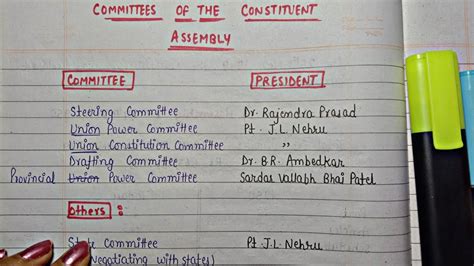 COMMITTEES OF THE CONSTITUENT
ASSEMBLY
COMMITTEE PRESIDENT
Steering Committee Dr. Rajendra Prasad
Union Power Committee Pt. J.L. Nehru
Union Constitution Committee "
Drafting Committee Dr. B.R. Ambedkar
Provincial Union Power Committee Sardar Vallabh Bhai Patel
Others :
State Committee Pt. J.L. Nehru
(Negotiating with states)